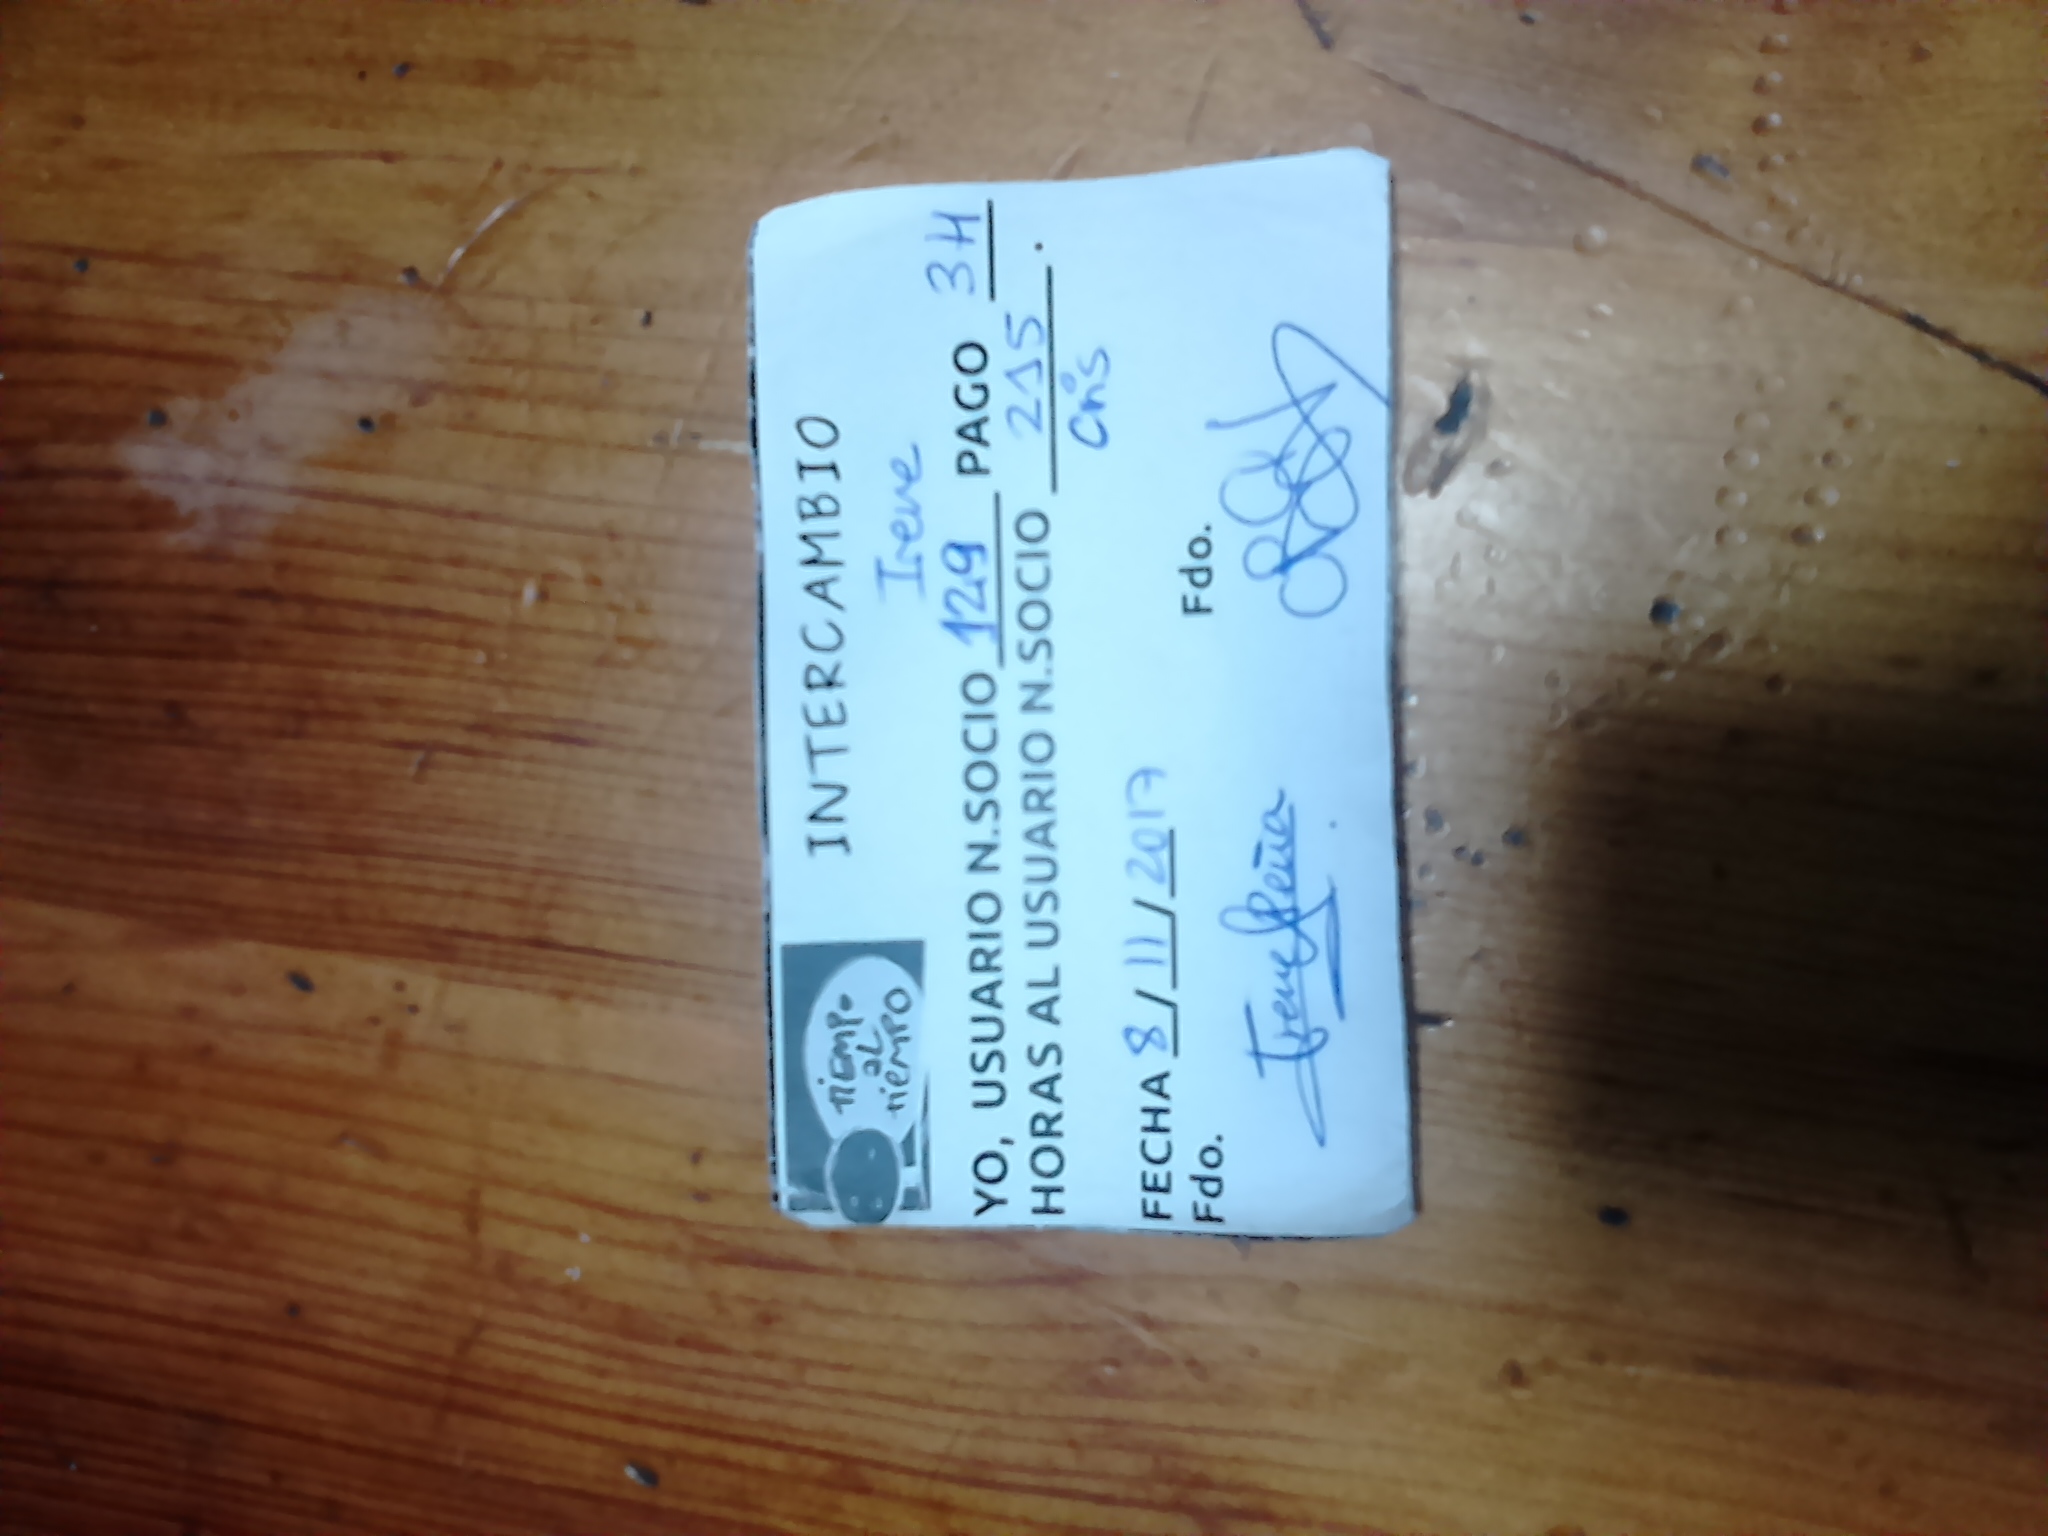 TIEMPO
AL
TIEMPO
INTERCAMBIO
Irene
YO, USUARIO N.SOCIO 129 PAGO 3H
HORAS AL USUARIO N.SOCIO 215.
Cris
FECHA 8/11/2017
Fdo. Fdo.
Irene Peña